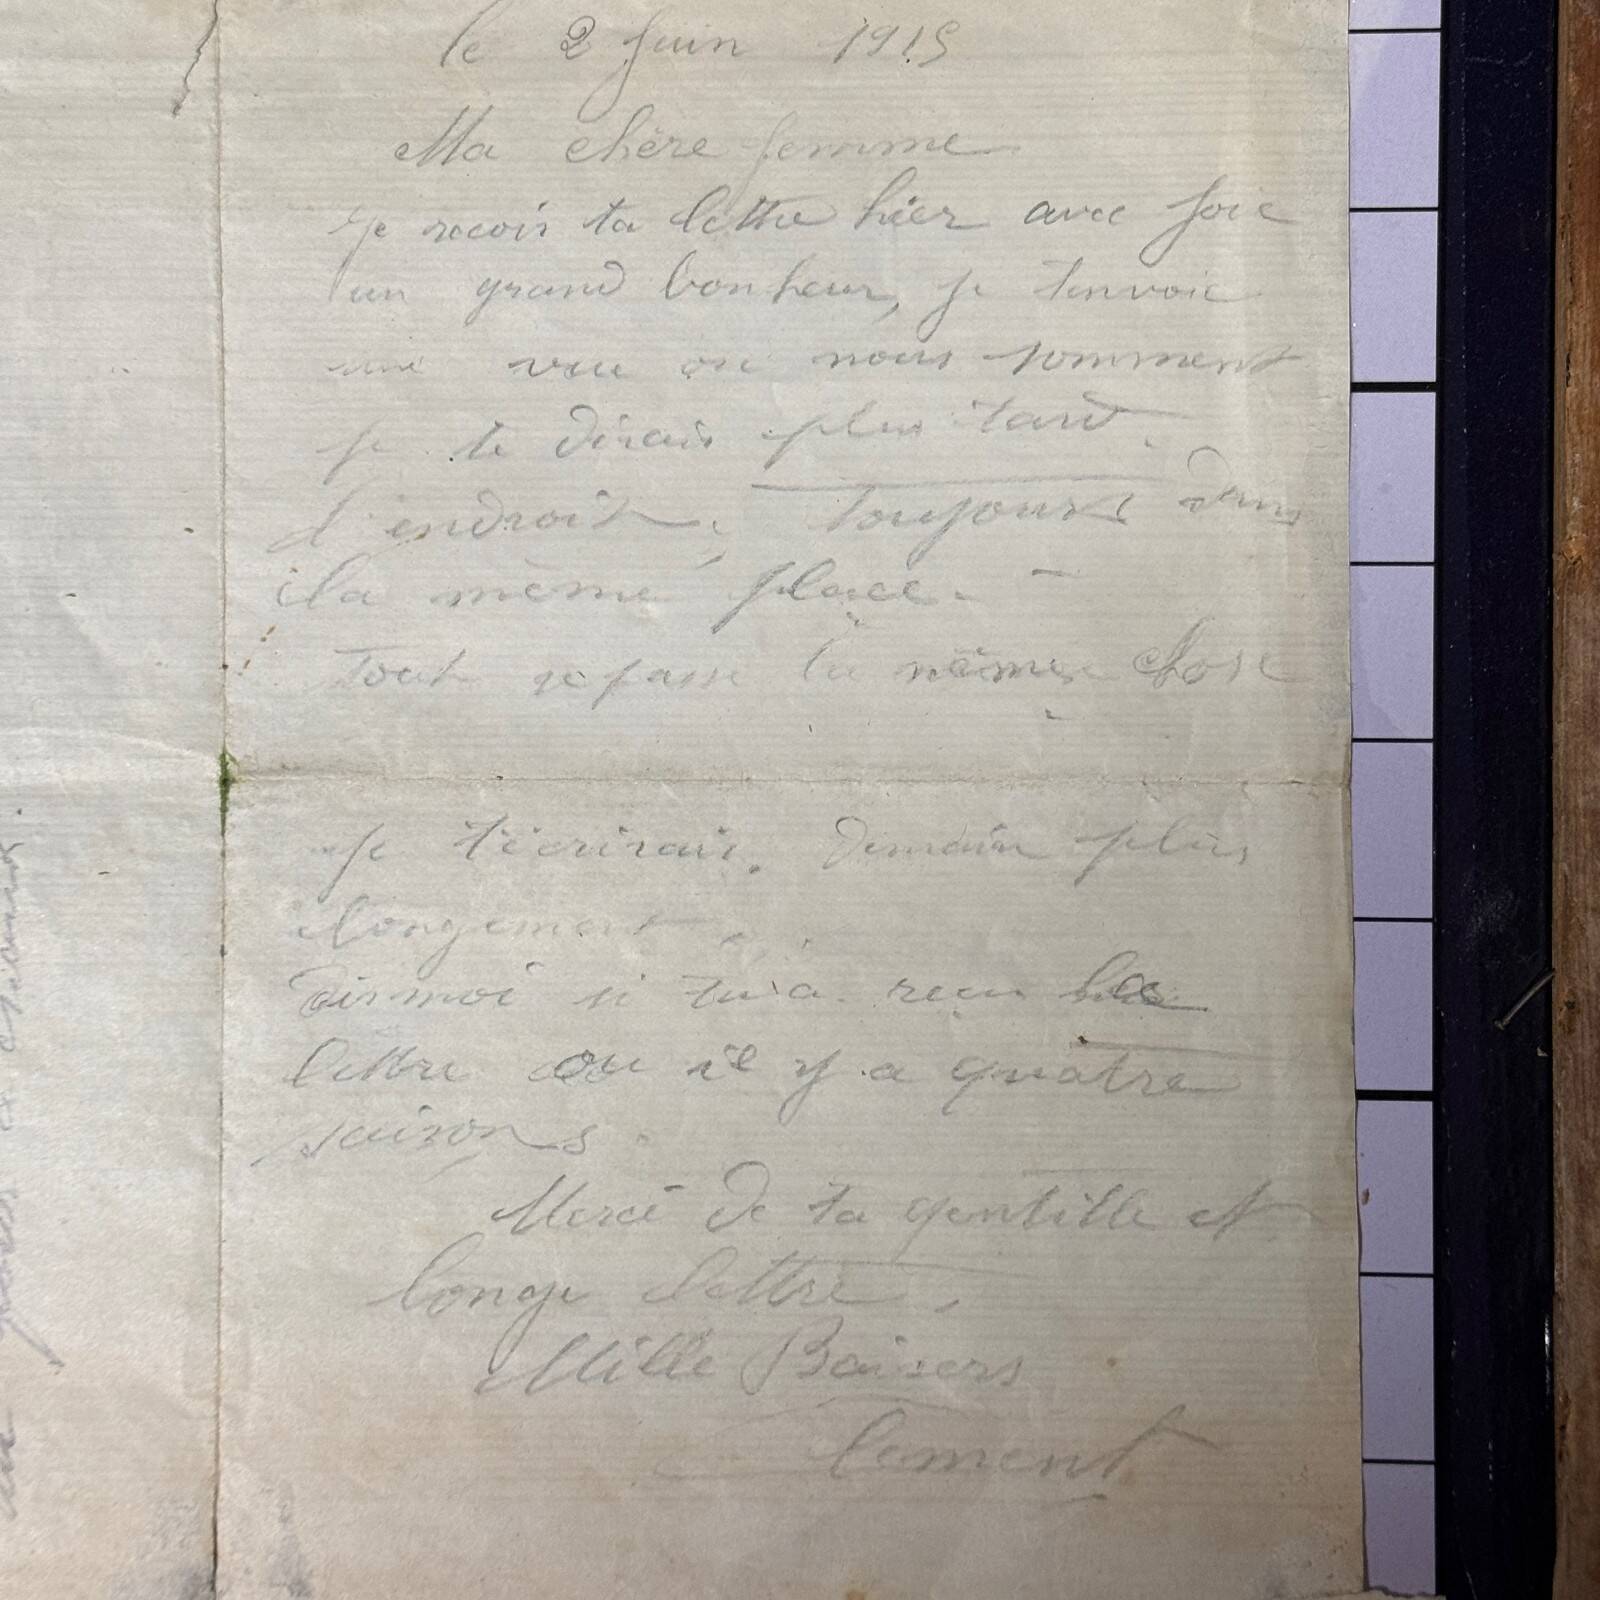 le 2 Juin 1915
Ma chère femme
Je recois ta lettre hier avec joie
un grand bonheur, je tenvoie
une vue ou nous somment
je te dirais plus tard.
l'endroit, toujours dans
la même place.
Tout se passe la même chose
je t'écrirais. Demain plus
longement.
dis moi si tu a recu
lettre ou il y a quatre
saisons.
Merci de ta gentille et
longe lettre,
Mille Baisers
Clement